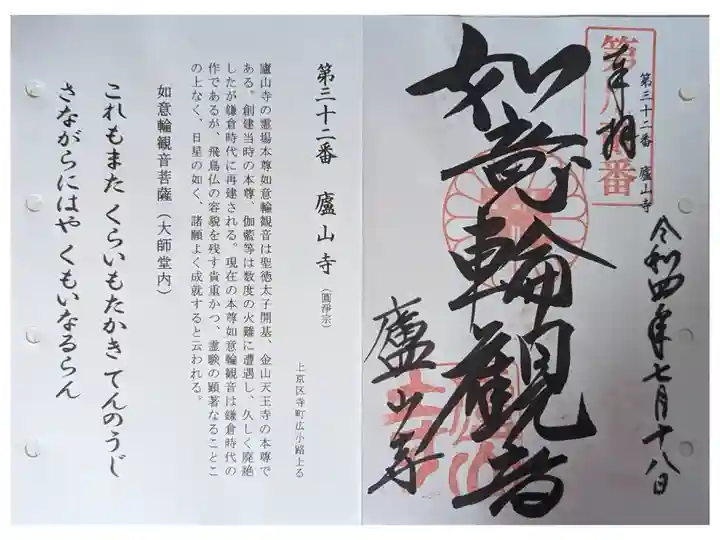 奉拝
第三十二番 廬山寺
如意輪観音
廬山寺
令和四年七月十八日
第三十二番 廬山寺(圓淨宗)
上京区寺町広小路上る
廬山寺の霊場本尊如意輪観音は聖徳太子開基、金山天王寺の本尊で
ある。創建当時の本尊、伽藍等は数度の火難に遭遇し、久しく廃絶
したが鎌倉時代に再建される。現在の本尊如意輪観音は鎌倉時代の
作であるが、飛鳥仏の容貌を残す貴重かつ、霊験の顕著なることこ
の上なく、日星の如く、諸願よく成就すると云われる。
如意輪観音菩薩(大師堂内)
これもまた くらいもたかき てんのうじ
さながらにはや くもいなるらん